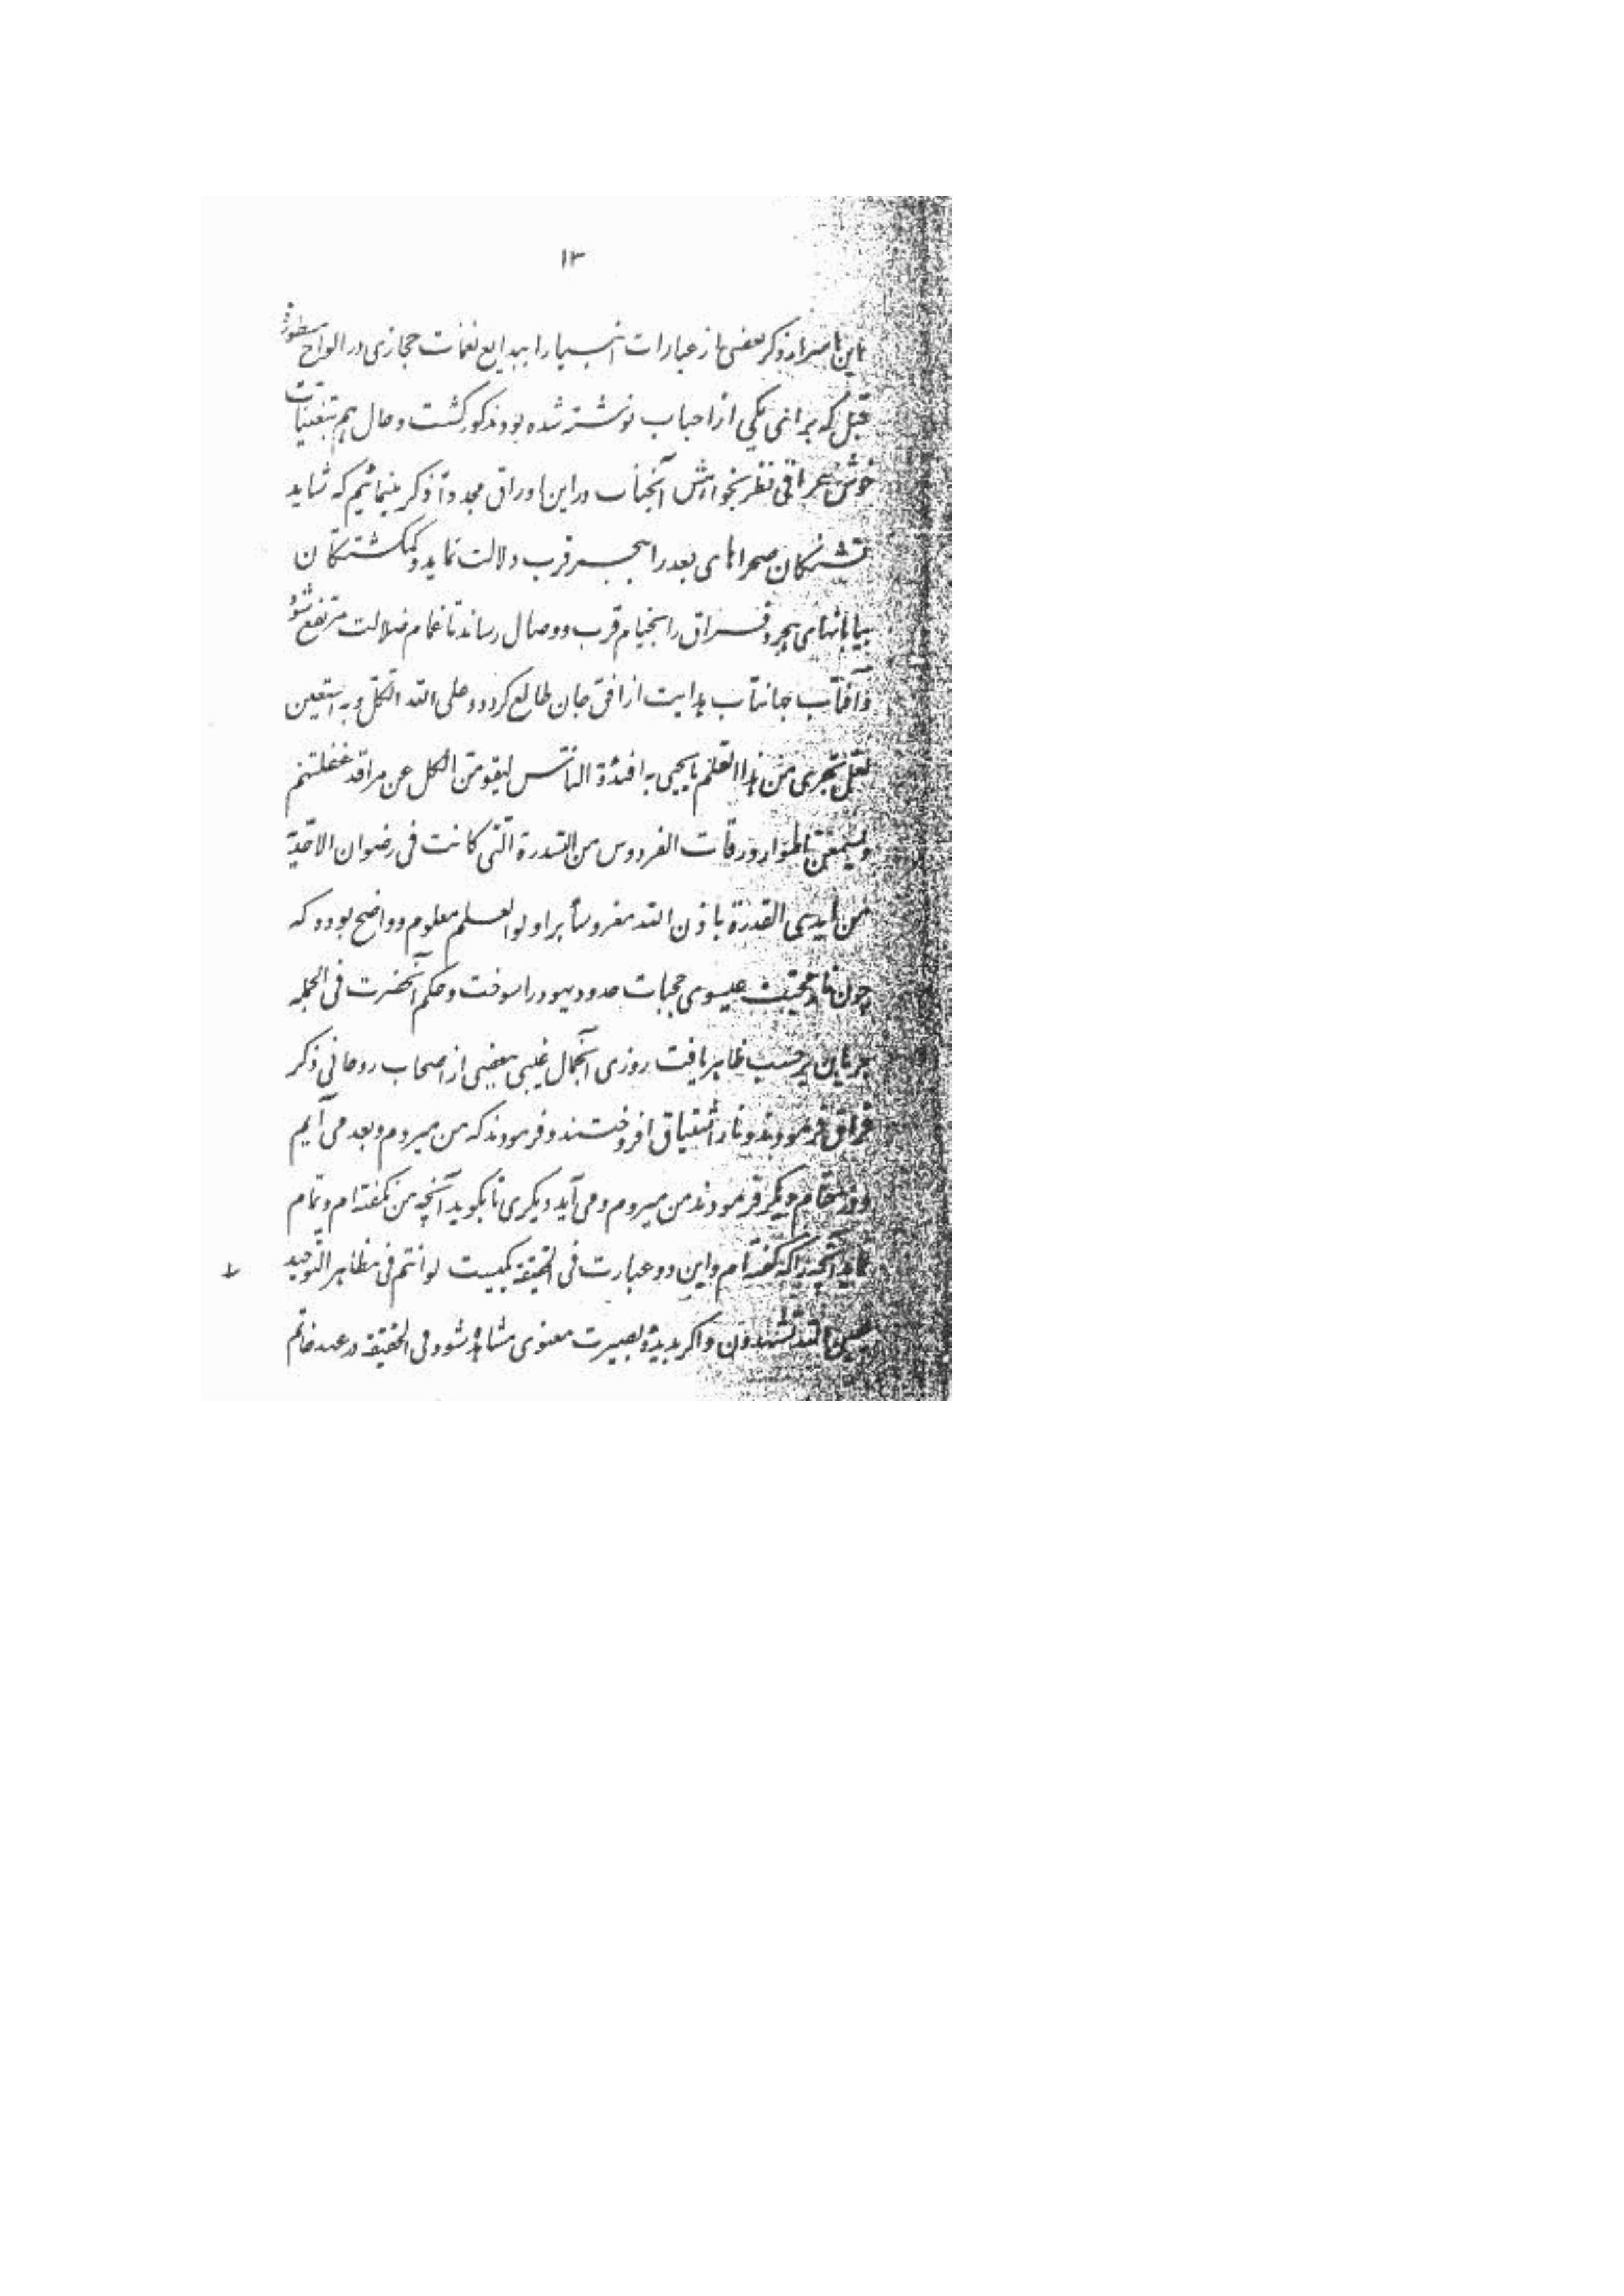 ۱۳
این اسرار ذکر بعضی از عبارات انبیا را ببدایع نغمات حجازی در الواح مسطوره
قبل که برای یکی از احباب نوشته شده بود مذکور گشت و حال هم بتغنیات
خوش عراقی نظر بخواهش آنجناب در این اوراق مجددا ذکر مینمائیم که شاید
تشنگان صحراهای بعد را ببحر قرب دلالت نماید و گمگشتگان
بیابانهای هجر و فراق را بخیام قرب و وصال رساند تا غمام ضلالت مرتفع شود
و آفتاب جهانتاب هدایت از افق جان طالع گردد و علی الله اتّکل و به استعین
لعل یجری من هذا القلم ما یحیی به افئدة الناس لیقومن الکل عن مراقد غفلتهم
و یسمعن اطوار ورقات الفردوس من السدرة التی کانت فی رضوان الاحدیة
من ایدی القدرة باذن الله مغروسا بر اولو العلم معلوم و واضح بوده که
چون نار محبت عیسوی حجبات حدود یهود را سوخت و حکم آنحضرت فی الجمله
جریان بر حسب ظاهر یافت روزی آنجمال غیبی ببعضی از اصحاب روحانی ذکر
فراق فرمودند و نار اشتیاق افروختند و فرمودند که من میروم و بعد می‌آیم
و در مقام دیگر فرمودند من میروم و می‌آید دیگری تا بگوید آنچه من نگفته‌ام و تمام
نماید آنچه را که گفته‌ام و این دو عبارت فی الحقیقه یکیست لو انتم فی مظاهر التوحید
بعین الله تشهدون و اگر بدیده بصیرت معنوی مشاهده شود فی الحقیقه در عهد خاتم